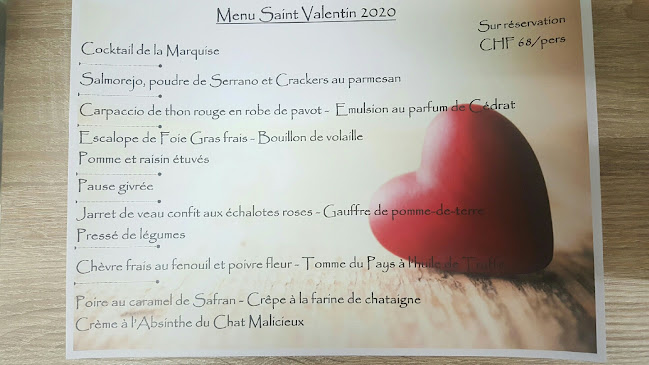 Menu Saint Valentin 2020
Sur réservation
CHF 68/pers
Cocktail de la Marquise
Salmorejo, poudre de Serrano et Crackers au parmesan
Carpaccio de thon rouge en robe de pavot - Emulsion au parfum de Cédrat
Escalope de Foie Gras frais - Bouillon de volaille
Pomme et raisin étuvés
Pause givrée
Jarret de veau confit aux échalotes roses - Gauffre de pomme-de-terre
Pressé de légumes
Chèvre frais au fenouil et poivre fleur - Tomme du Pays à l'huile de Truffe
Poire au caramel de Safran - Crêpe à la farine de chataigne
Crème à l'Absinthe du Chat Malicieux